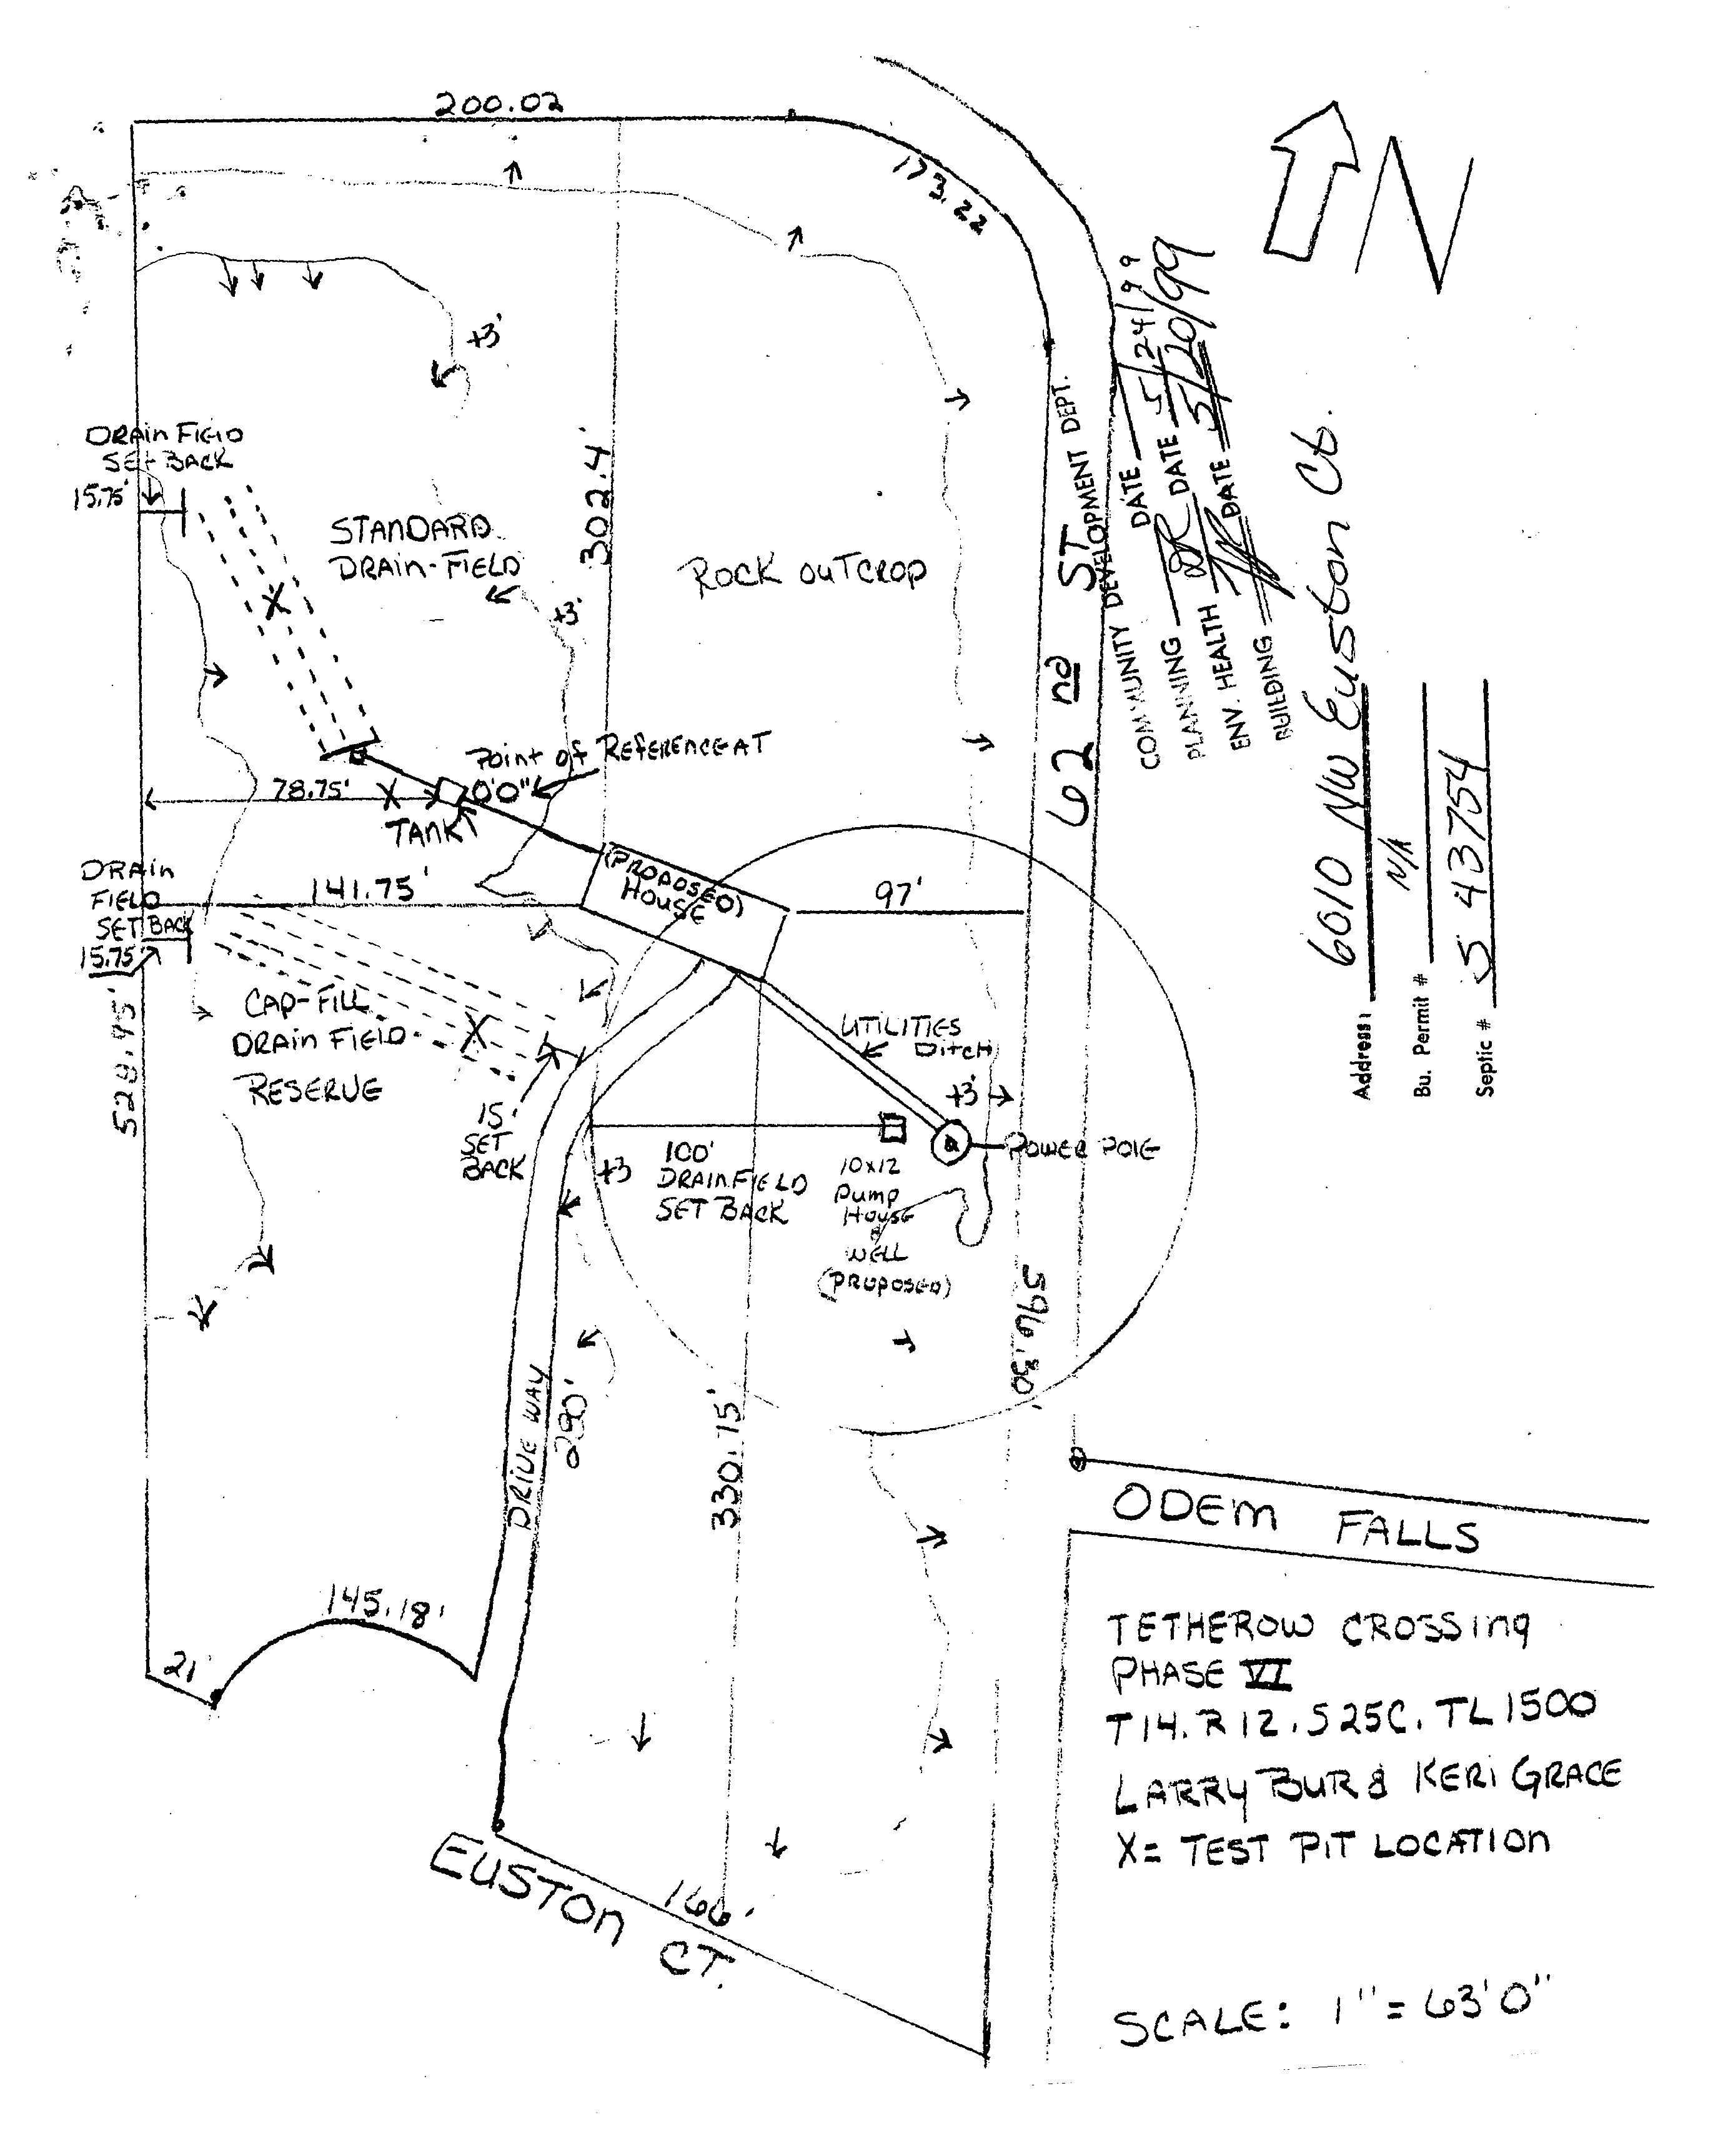 200.02
173.22
N
+3'
DRAIN FIELD
SET BACK
15.75'
STANDARD
DRAIN-FIELD
302.4'
ROCK OUTCROP
+3'
62 nd ST
COMMUNITY DEVELOPMENT DEPT.
DATE 5/24/99
PLANNING DATE 5/20/99
ENV. HEALTH DATE
BUILDING
Address: 6010 NW Euston Ct.
Bu. Permit # N/A
Septic # S 43754
Point of REFERENCE AT
0'0"
78.75'
X
TANK
DRAIN
FIELD
SET BACK
15.75'
141.75'
(PROPOSED)
HOUSE
97'
CAP-FILL
DRAIN FIELD
RESERVE
X
UTILITIES
DITCH
+3'
15'
SET
BACK
+3
100'
DRAINFIELD
SET BACK
10x12
PUMP
HOUSE
&
WELL
(PROPOSED)
POWER POLE
596.30'
DRIVE WAY
280'
330.15'
145.18'
21'
ODEM FALLS
TETHEROW CROSSING
PHASE VI
T14. R12. S25C. TL1500
LARRY BUR & KERI GRACE
X= TEST PIT LOCATION
EUSTON CT.
166'
SCALE: 1" = 63'0"